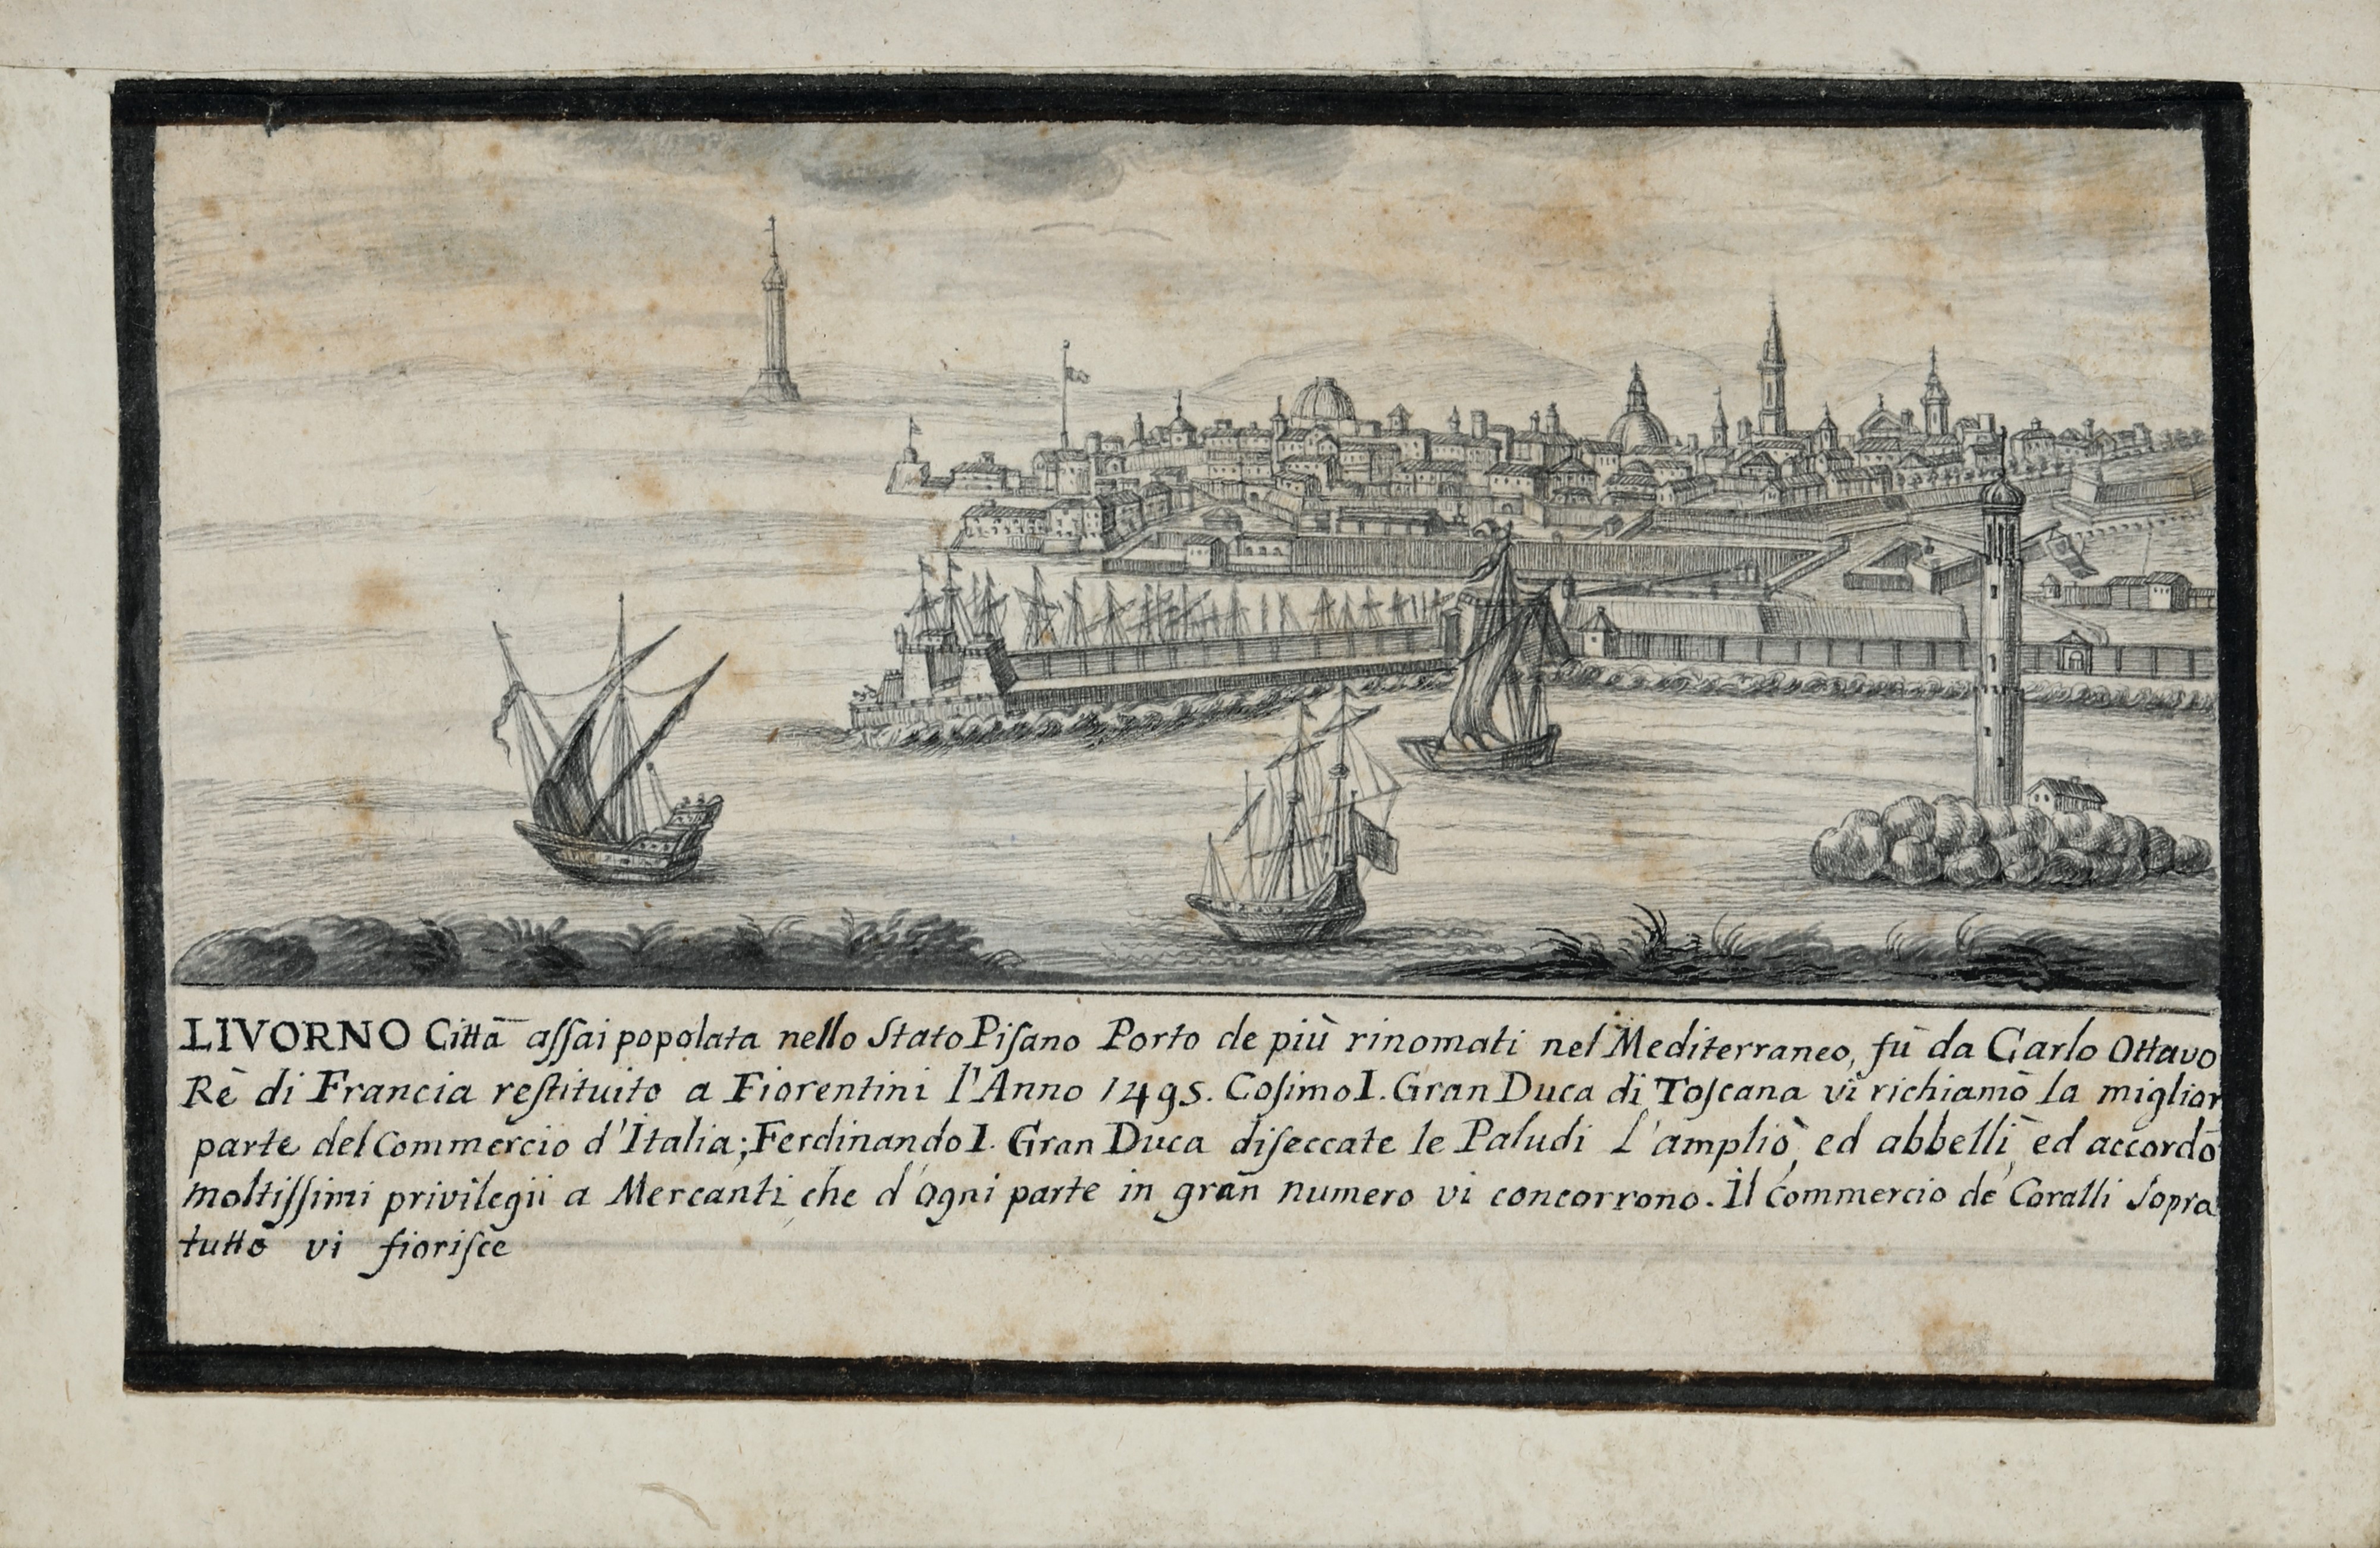 LIVORNO Città aſſai popolata nello Stato Piſano Porto de più rinomati nel Mediterraneo, fù da Carlo Ottavo
Rè di Francia reſtituito a Fiorentini l'Anno 1495. Coſimo I. Gran Duca di Toſcana vi richiamò la miglior
parte del Commercio d'Italia; Ferdinando I. Gran Duca diſeccate le Paludi l'ampliò, ed abbellì, ed accordò
moltiſſimi privilegii a Mercanti, che d'ogni parte in gran numero vi concorrono. Il Commercio de Coralli Sopra
tutto vi fioriſce